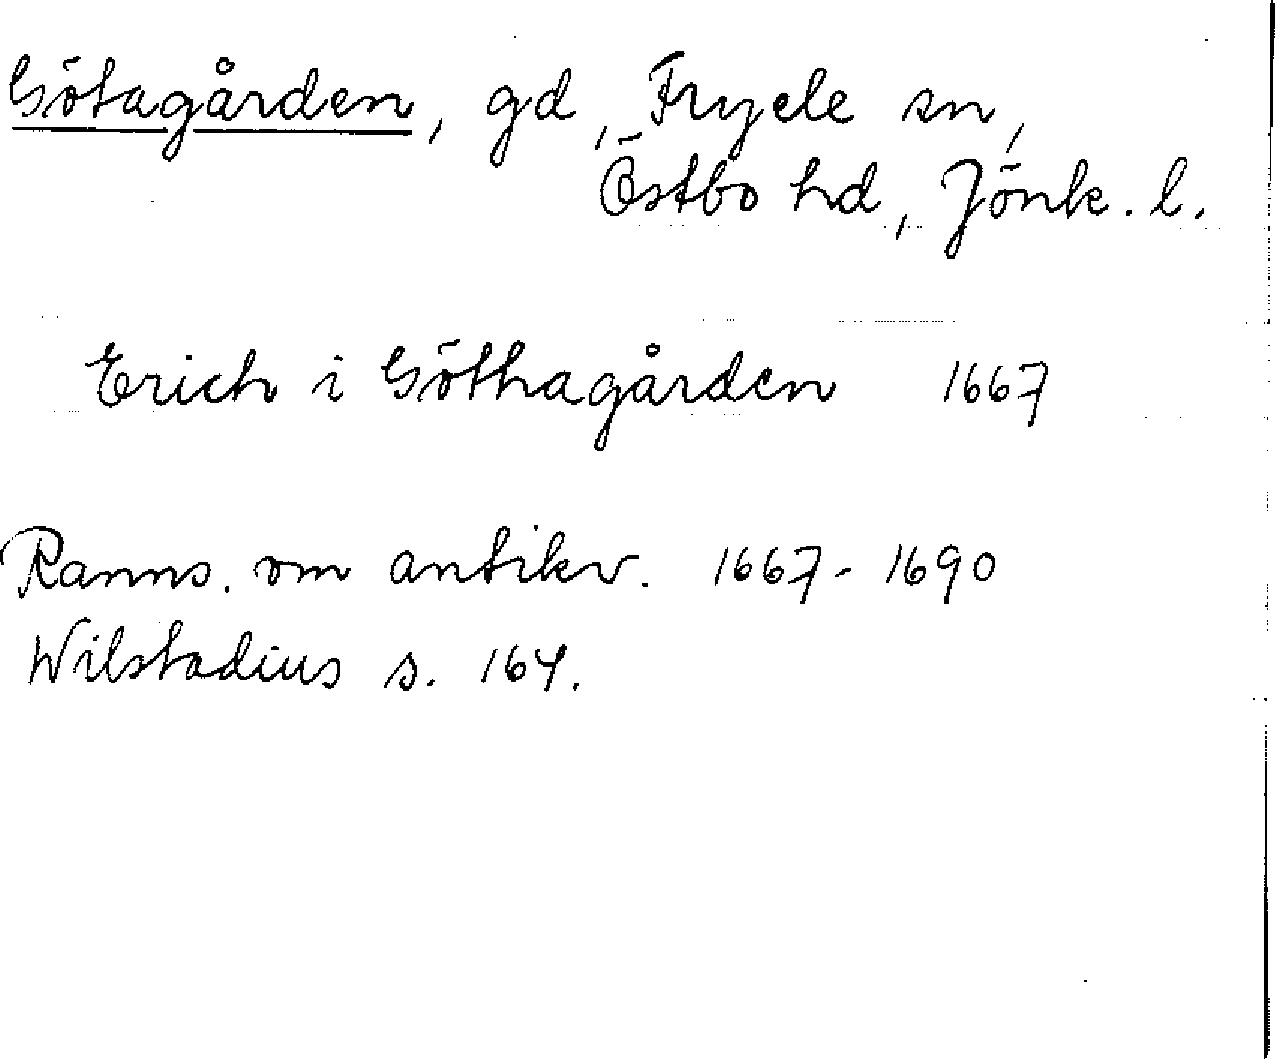 Götagården, gd, Fryele sn,
Östbo hd, Jönk. l.
Erich i Göthagården 1667
Ranns. om antikv. 1667-1690
Wilstadius s. 164.